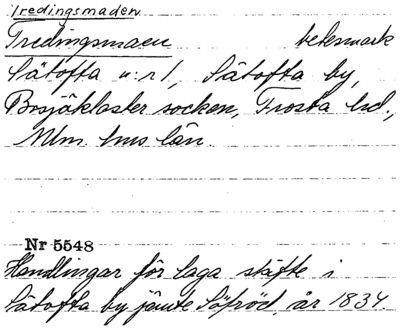 Tredingsmaden
Tredingsmaen betesmark
Sätofta n:r 1, Sätofta by,
Bosjökloster socken, Frosta hd.,
Mlm. hus län.
Nr 5548
Handlingar för laga skifte i
Sätofta by jämte Söfröd, år 1834.